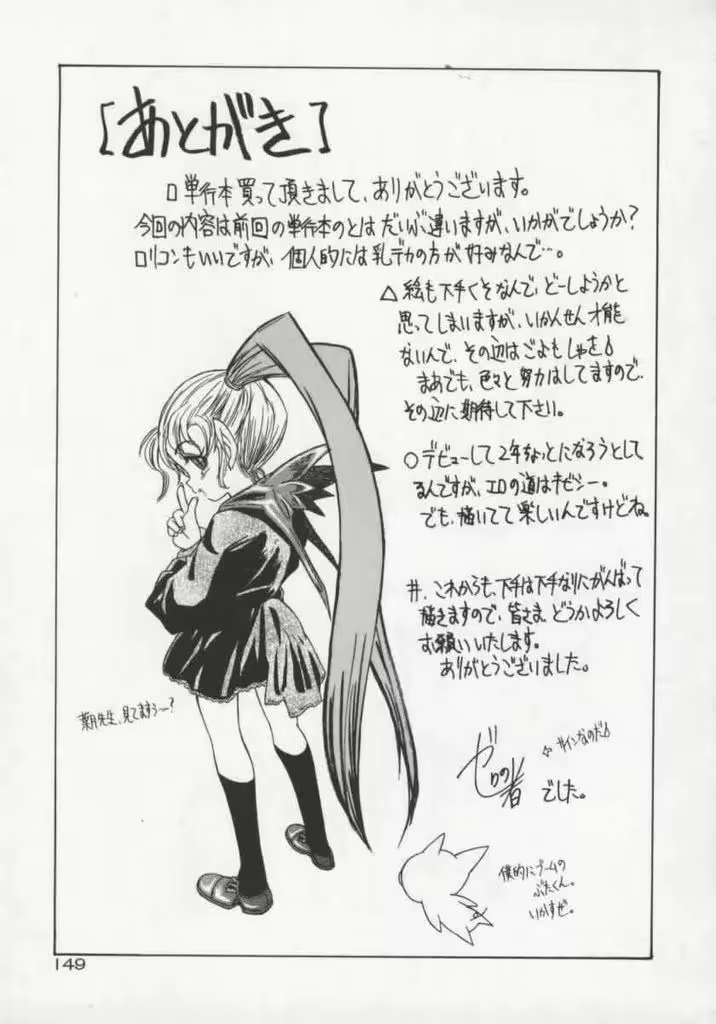 [あとがき]
□単行本買って頂きまして、ありがとうございます。
今回の内容は前回の単行本のとはだいぶ違いますが、いかがでしょうか?
ロリコンもいいですが、個人的には乳デカの方が好みなんで…。
△絵も下手くそなんで、どーしようかと
思ってしまいますが、いかんせん才能
ないんで、その辺はごよもしゃを♪
まあでも、色々と努力はしてますので、
その辺に期待して下さい。
○デビューして2年ちょっとになろうとして
るんですが、エロの道はキビシー。
でも、描いてて楽しいんですけどね。
#.これからも、下手は下手なりにがんばって
描きますので、皆さま、どうかよろしく
お願いいたします。
ありがとうございました。
先生、見てますぅ〜?
ゼロの者
⇦サインなのだ♪
でした。
僕的にブームの
ぶたくん。
いかすぜ。
149